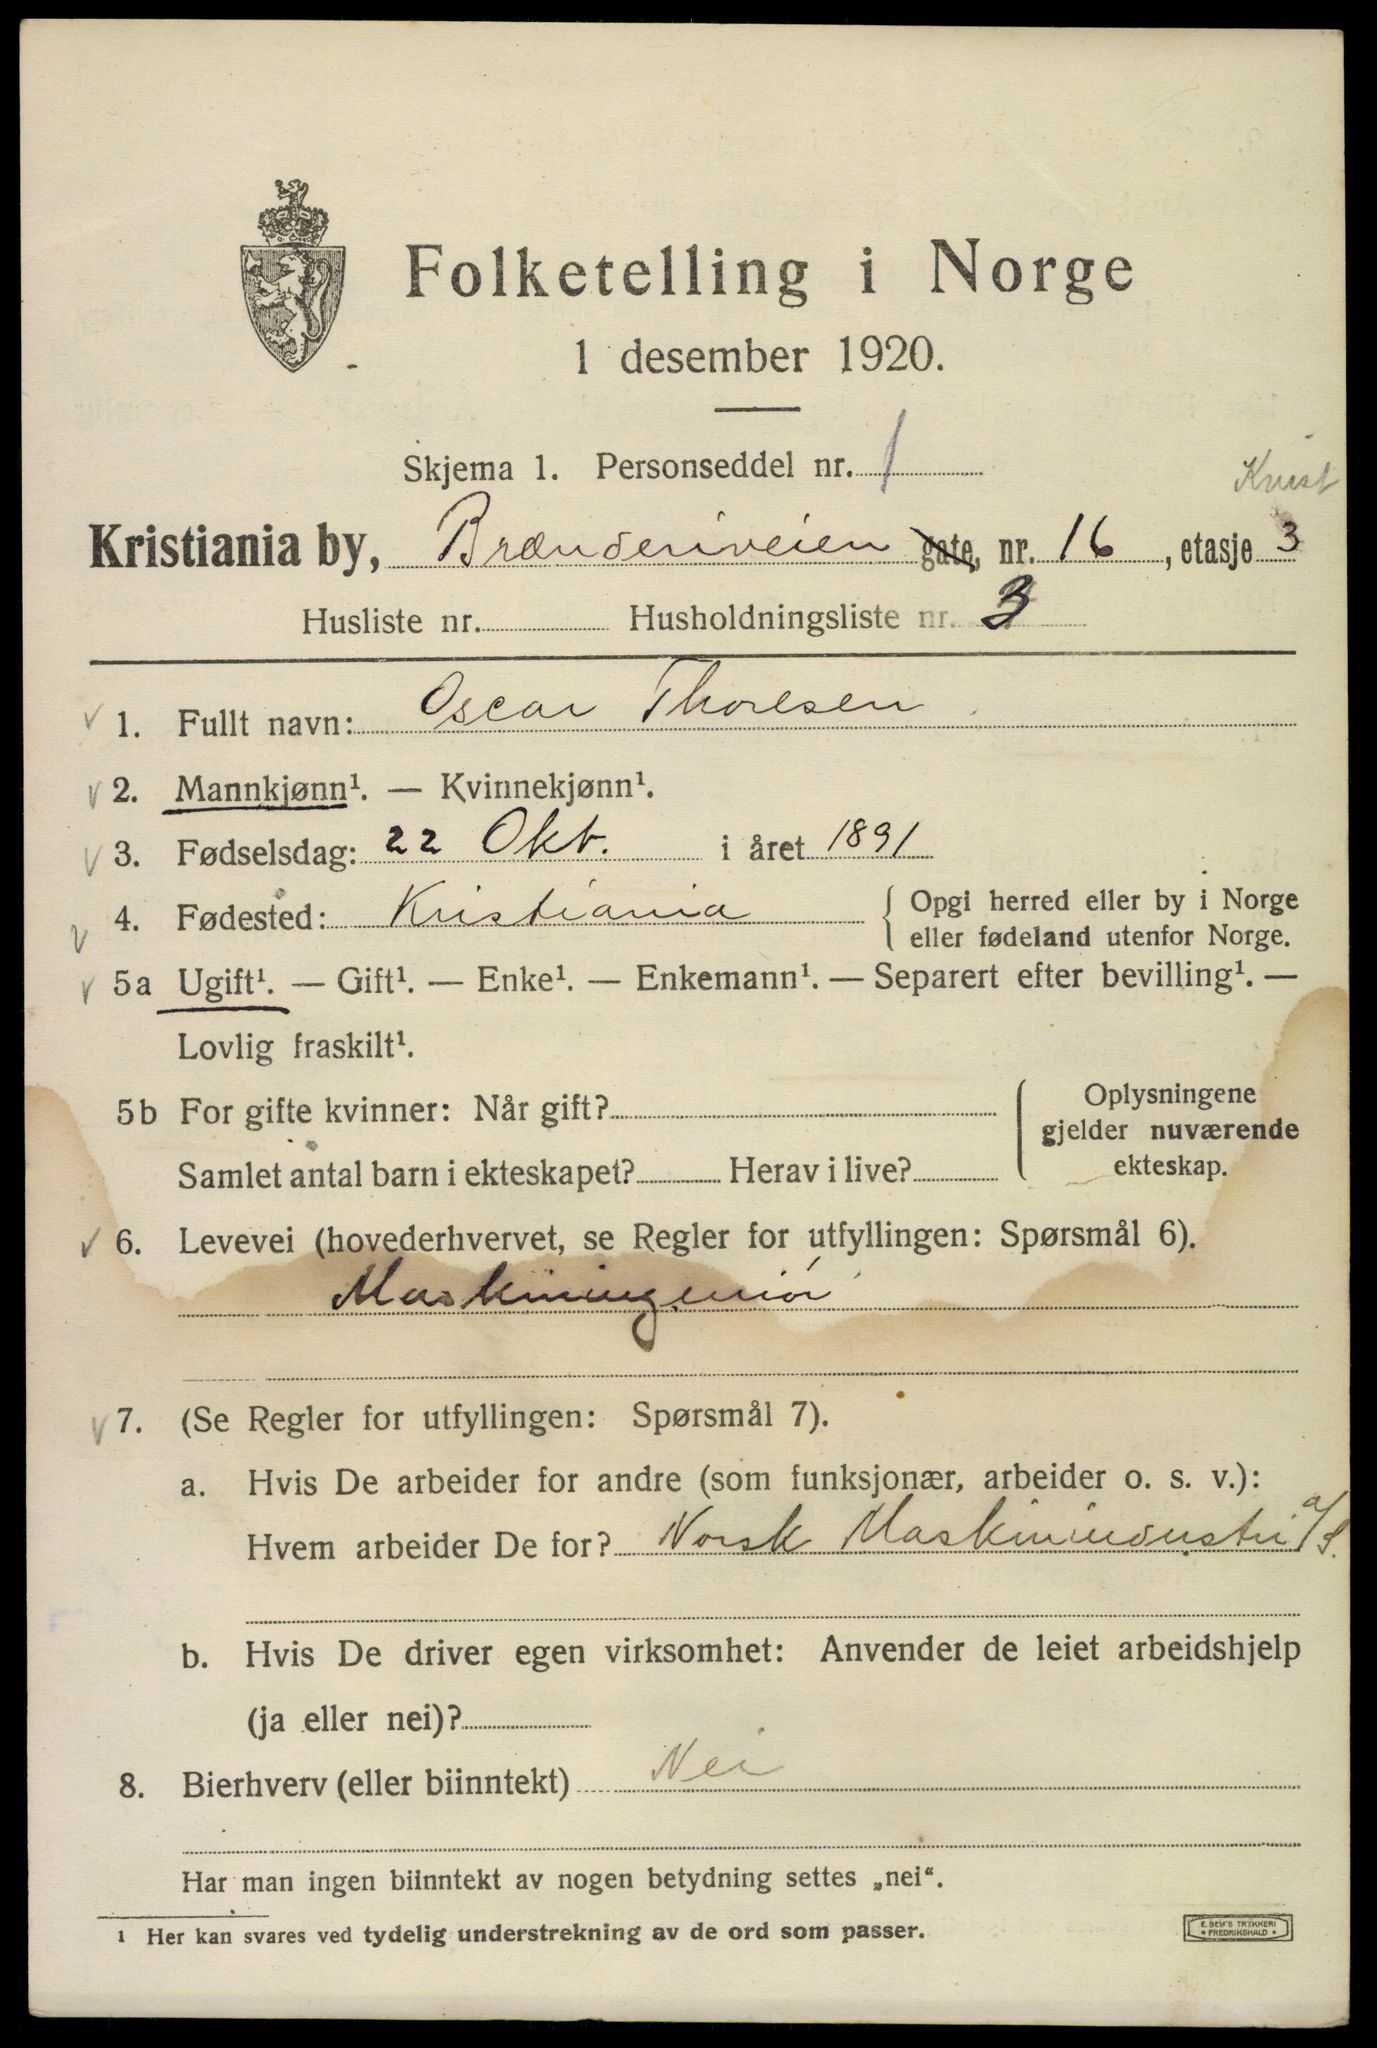 Folketelling i Norge
1 desember 1920.
Skjema 1. Personseddel nr. 1
Kvist
Kristiania by, Brænderiveien gate, nr. 16, etasje 3
Husliste nr. Husholdningsliste nr. 3
1. Fullt navn: Oscar Thoresen
2. Mannkjønn¹. — Kvinnekjønn¹.
3. Fødselsdag: 22 Okt. i året 1891
4. Fødested: Kristiania { Opgi herred eller by i Norge
eller fødeland utenfor Norge.
5a Ugift¹. — Gift¹. — Enke¹. — Enkemann¹. — Separert efter bevilling¹. —
Lovlig fraskilt¹.
5b For gifte kvinner: Når gift? { Oplysningene
gjelder nuværende
Samlet antal barn i ekteskapet? Herav i live? ekteskap.
6. Levevei (hovederhvervet, se Regler for utfyllingen: Spørsmål 6).
Maskiningeniør
7. (Se Regler for utfyllingen: Spørsmål 7).
a. Hvis De arbeider for andre (som funksjonær, arbeider o. s. v.):
Hvem arbeider De for? Norsk Maskinindustri a/S.
b. Hvis De driver egen virksomhet: Anvender de leiet arbeidshjelp
(ja eller nei)?
8. Bierhverv (eller biinntekt) Nei
Har man ingen biinntekt av nogen betydning settes „nei“.
¹ Her kan svares ved tydelig understrekning av de ord som passer.
E. SEM'S TRYKKERI
* FREDRIKSHALD *